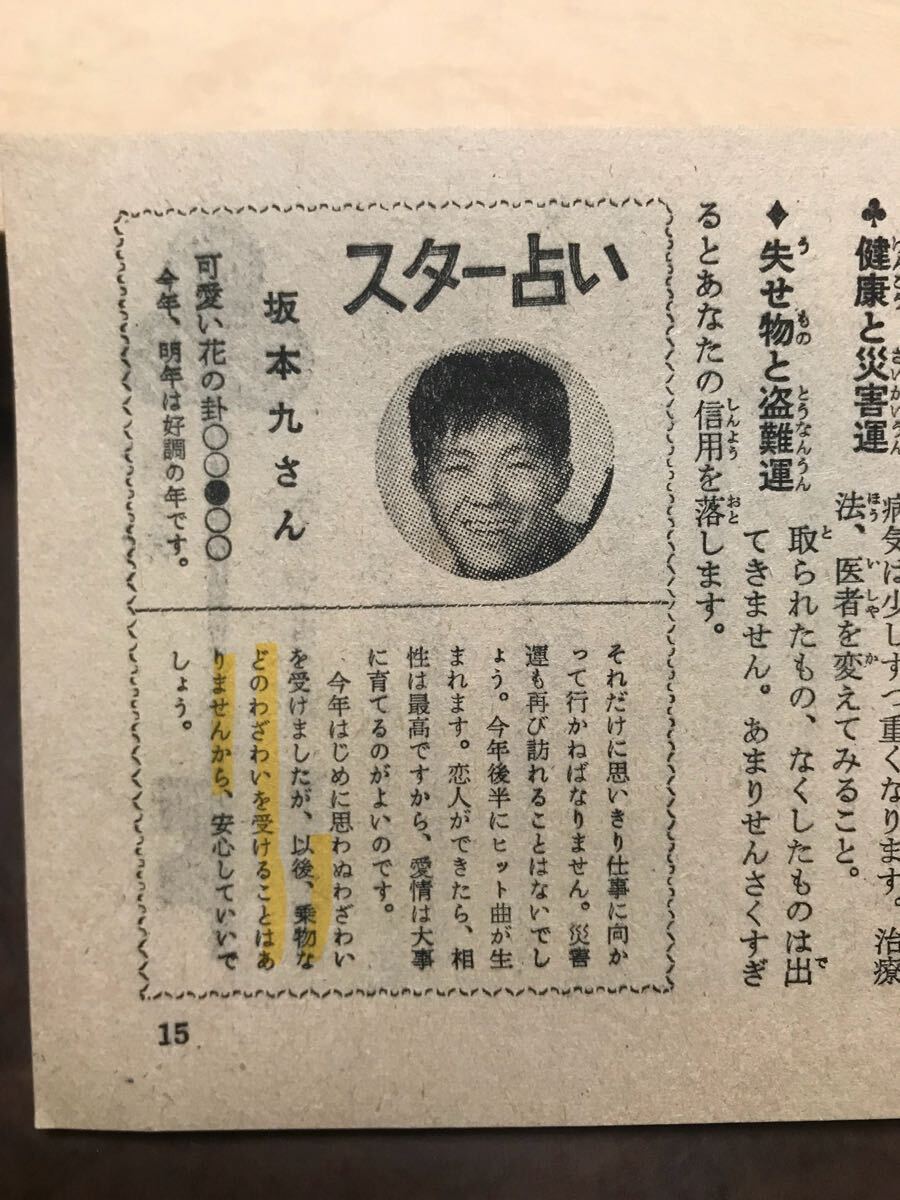 ♣健康と災害運
病気は少しずつ重くなります。治療
法、医者を変えてみること。
♦失せ物と盗難運
取られたもの、なくしたものは出
てきません。あまりせんさくすぎ
るとあなたの信用を落します。
スター占い
坂本九さん
可愛い花の卦〇〇●〇〇
今年、明年は好調の年です。
それだけに思いきり仕事に向か
って行かねばなりません。災害
運も再び訪れることはないでし
ょう。今年後半にヒット曲が生
まれます。恋人ができたら、相
性は最高ですから、愛情は大事
に育てるのがよいのです。
今年はじめに思わぬわざわい
を受けましたが、以後、乗物な
どのわざわいを受けることはあ
りませんから、安心していいで
しょう。
15